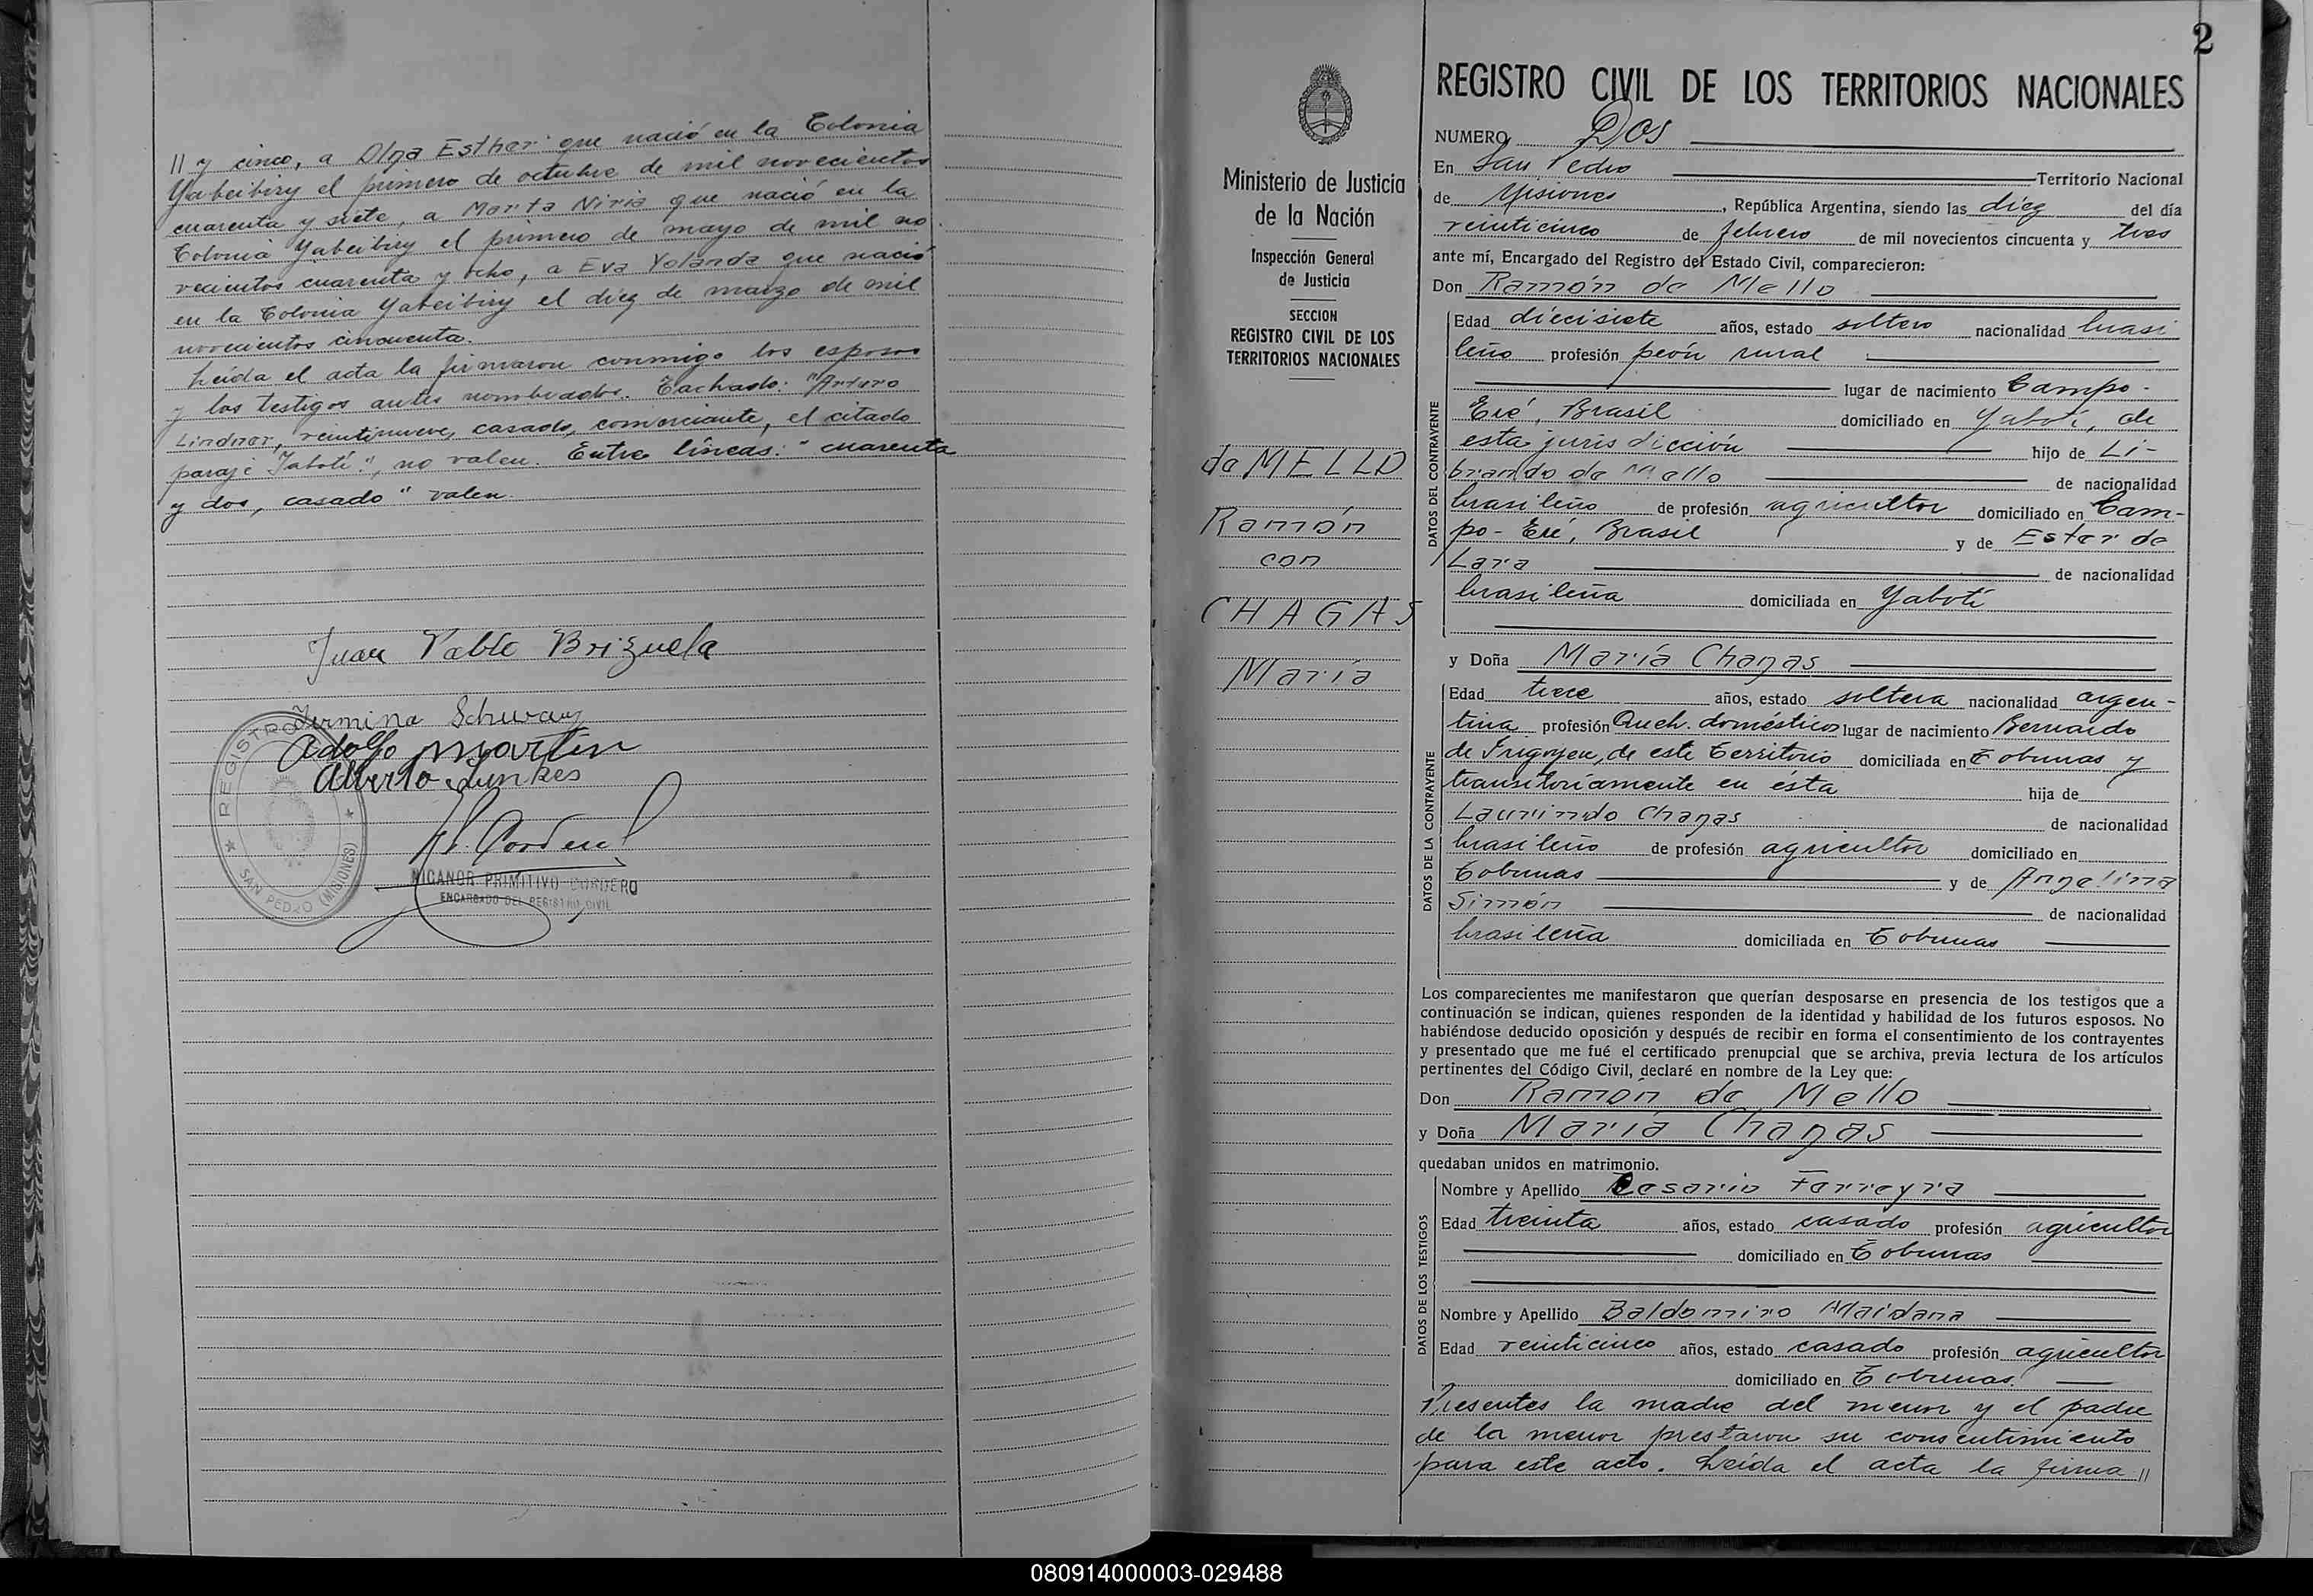 // y cinco, a Olga Esther que nació en la Colonia
Yabeibiry el primero de octubre de mil novecientos
cuarenta y siete, a Marta Niria que nació en la
Colonia Yabeibiry el primero de mayo de mil no
vecientos cuarenta y ocho, a Eva Yolanda que nació
en la Colonia Yabeibiry el diez de marzo de mil
novecientos cincuenta.
Leída el acta la firmaron conmigo los esposos
y los testigos antes nombrados. Tachado: "Arturo
Lindner, veintinueve, casado, comerciante, el citado
paraje Yabotí", no valen. Entre líneas: "cuarenta
y dos, casado" valen.
Juan Pablo Brizuela
Adolfo Martin
Alberto Lunkes
REGISTRO
SAN PEDRO (MISIONES)
NICANOR PRIMITIVO CORDERO
ENCARGADO DEL REGISTRO CIVIL
2
Ministerio de Justicia
de la Nación
Inspección General
de Justicia
SECCION
REGISTRO CIVIL DE LOS
TERRITORIOS NACIONALES
de MELLO
Ramón
con
CHAGAS
María
REGISTRO CIVIL DE LOS TERRITORIOS NACIONALES
NUMERO Dos
En San Pedro Territorio Nacional
de Misiones, República Argentina, siendo las diez del día
veinticinco de febrero de mil novecientos cincuenta y tres
ante mí, Encargado del Registro del Estado Civil, comparecieron:
Don Ramón de Mello
DATOS DEL CONTRAYENTE
Edad diecisiete años, estado soltero nacionalidad brasi
leño profesión peón rural
lugar de nacimiento Campo-
Eré, Brasil domiciliado en Yabotí, de
esta jurisdicción hijo de Li-
brando de Mello de nacionalidad
brasileño de profesión agricultor domiciliado en Cam-
po-Eré, Brasil y de Ester de
Lara de nacionalidad
brasileña domiciliada en Yabotí
y Doña María Chagas
DATOS DE LA CONTRAYENTE
Edad trece años, estado soltera nacionalidad argen-
tina profesión Queh. domésticos lugar de nacimiento Bernardo
de Irigoyen, de este Territorio domiciliada en Tobunas y
transitoriamente en ésta hija de
Laurindo Chagas de nacionalidad
brasileño de profesión agricultor domiciliado en
Tobunas y de Angelina
Simón de nacionalidad
brasileña domiciliada en Tobunas
Los comparecientes me manifestaron que querían desposarse en presencia de los testigos que a
continuación se indican, quienes responden de la identidad y habilidad de los futuros esposos. No
habiéndose deducido oposición y después de recibir en forma el consentimiento de los contrayentes
y presentado que me fué el certificado prenupcial que se archiva, previa lectura de los artículos
pertinentes del Código Civil, declaré en nombre de la Ley que:
Don Ramón de Mello
y Doña María Chagas
quedaban unidos en matrimonio.
DATOS DE LOS TESTIGOS
Nombre y Apellido Rosario Ferreyra
Edad treinta años, estado casado profesión agricultor
domiciliado en Tobunas
Nombre y Apellido Baldomiro Maidana
Edad veinticinco años, estado casado profesión agricultor
domiciliado en Tobunas.
Presentes la madre del menor y el padre
de la menor prestaron su consentimiento
para este acto. Leída el acta la firma //
080914000003-029488